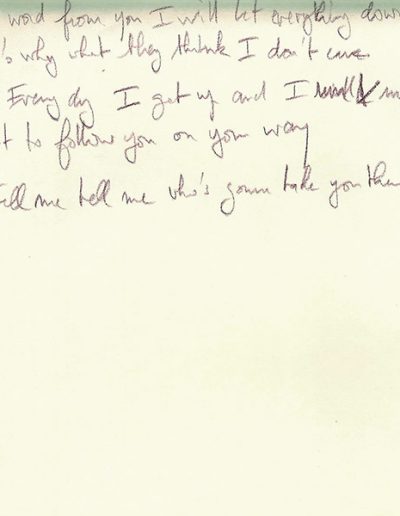 word from you I will let everything down
's why what they think I don't care
Every day I get up and I
t to follow you on your way
ell me tell me who's gonna take you the